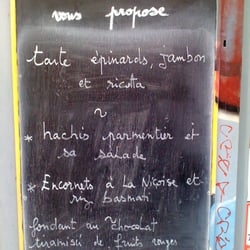 vous propose
tarte épinards, jambon
et ricotta
~
* hachis parmentier et
sa salade
* Encornets à La Niçoise et
riz basmati
fondant au Chocolat
tiramisu de fruits rouges